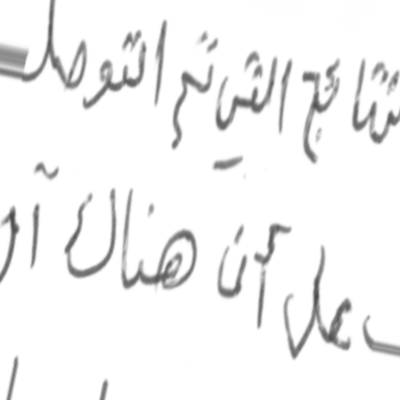 نتائج التي تم التوصل
على أن هناك